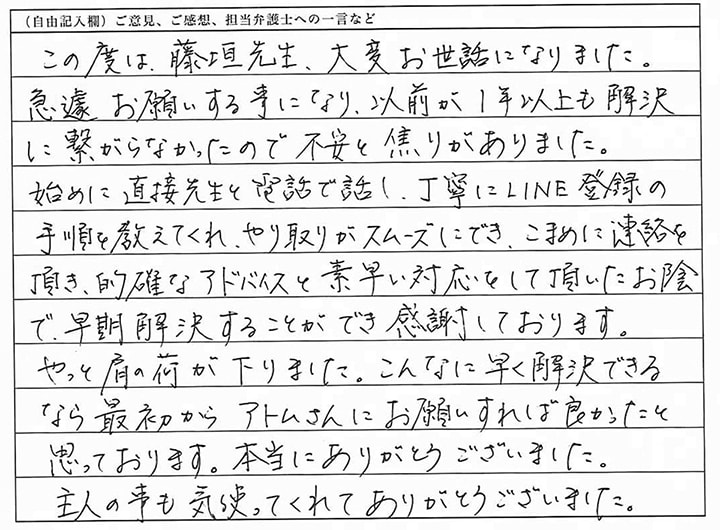 （自由記入欄）ご意見、ご感想、担当弁護士への一言など
この度は、藤垣先生、大変お世話になりました。
急遽、お願いする事になり、以前が1年以上も解決
に繋がらなかったので不安と焦りがありました。
始めに直接先生と電話で話し、丁寧にLINE登録の
手順を教えてくれ、やり取りがスムーズにでき、こまめに連絡を
頂き、的確なアドバイスと素早い対応をして頂いたお陰
で、早期解決することができ感謝しております。
やっと肩の荷が下りました。こんなに早く解決できる
なら最初からアトムさんにお願いすれば良かったと
思っております。本当にありがとうございました。
主人の事も気使ってくれてありがとうございました。